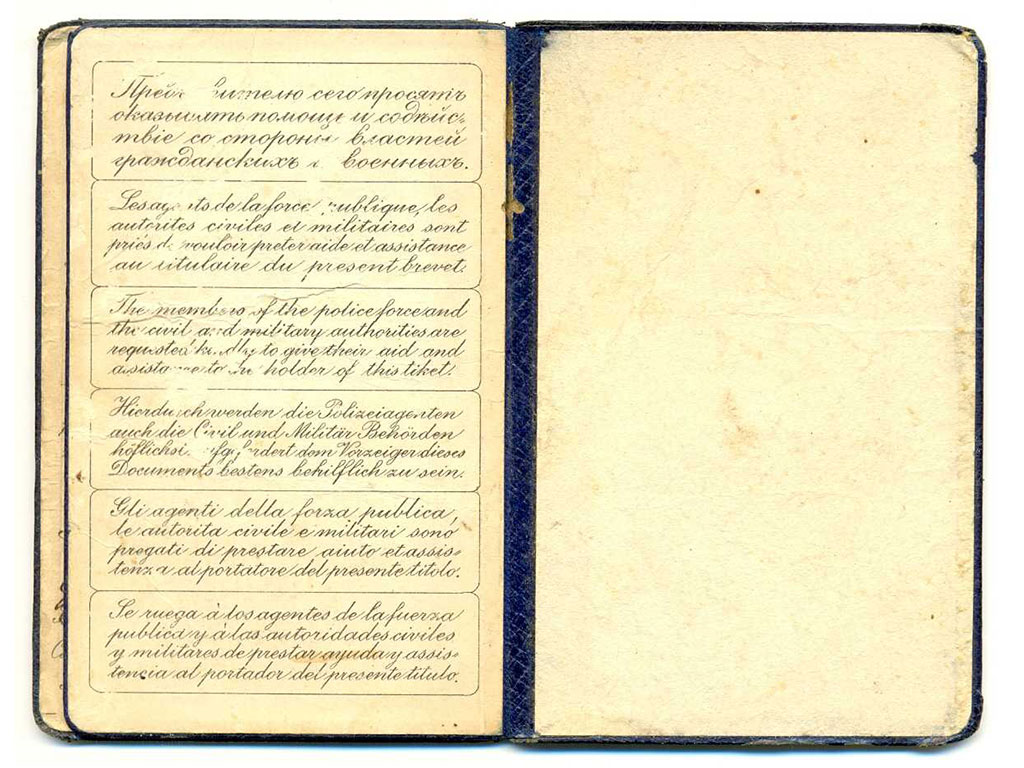 сего просятъ
оказывать помощь и содѣйс-
твіе со стороны властей
гражданскихъ военныхъ.
Les agents de la force publique, les
autorites civiles et militaires sont
priés de vouloir preter aide et assistance
au titulaire du present brevet.
The members of the police force and
the civil and military authorities are
requested kindly to give their aid and
assistance to the holder of this tiket.
Hierdurch werden die Polizeiagenten
auch die Civil und Militär Behörden
höflichst dem Vorzeiger dieses
Documents bestens behilflich zu sein.
Gli agenti della forza publica,
le autorita civile e militari sono
pregati di prestare aiuto et assis-
tenza al portatore del presente titolo.
Se ruega à los agentes de la fuerza
publica y à las autoridades civiles
y militares de prestar ayuda y assis-
tencia al portador del presente titulo.